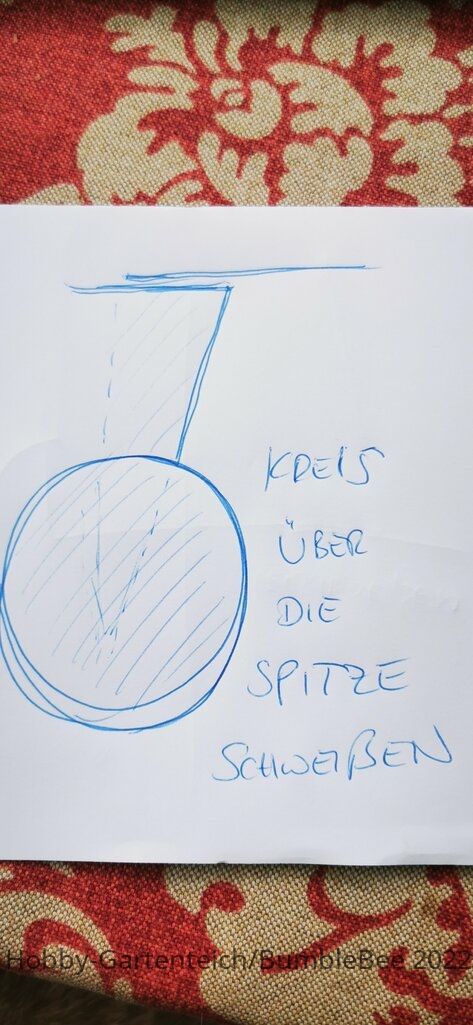 KREIS
ÜBER
DIE
SPITZE
SCHWEIßEN
Hobby-Gartenteich/BumbleBee 2022